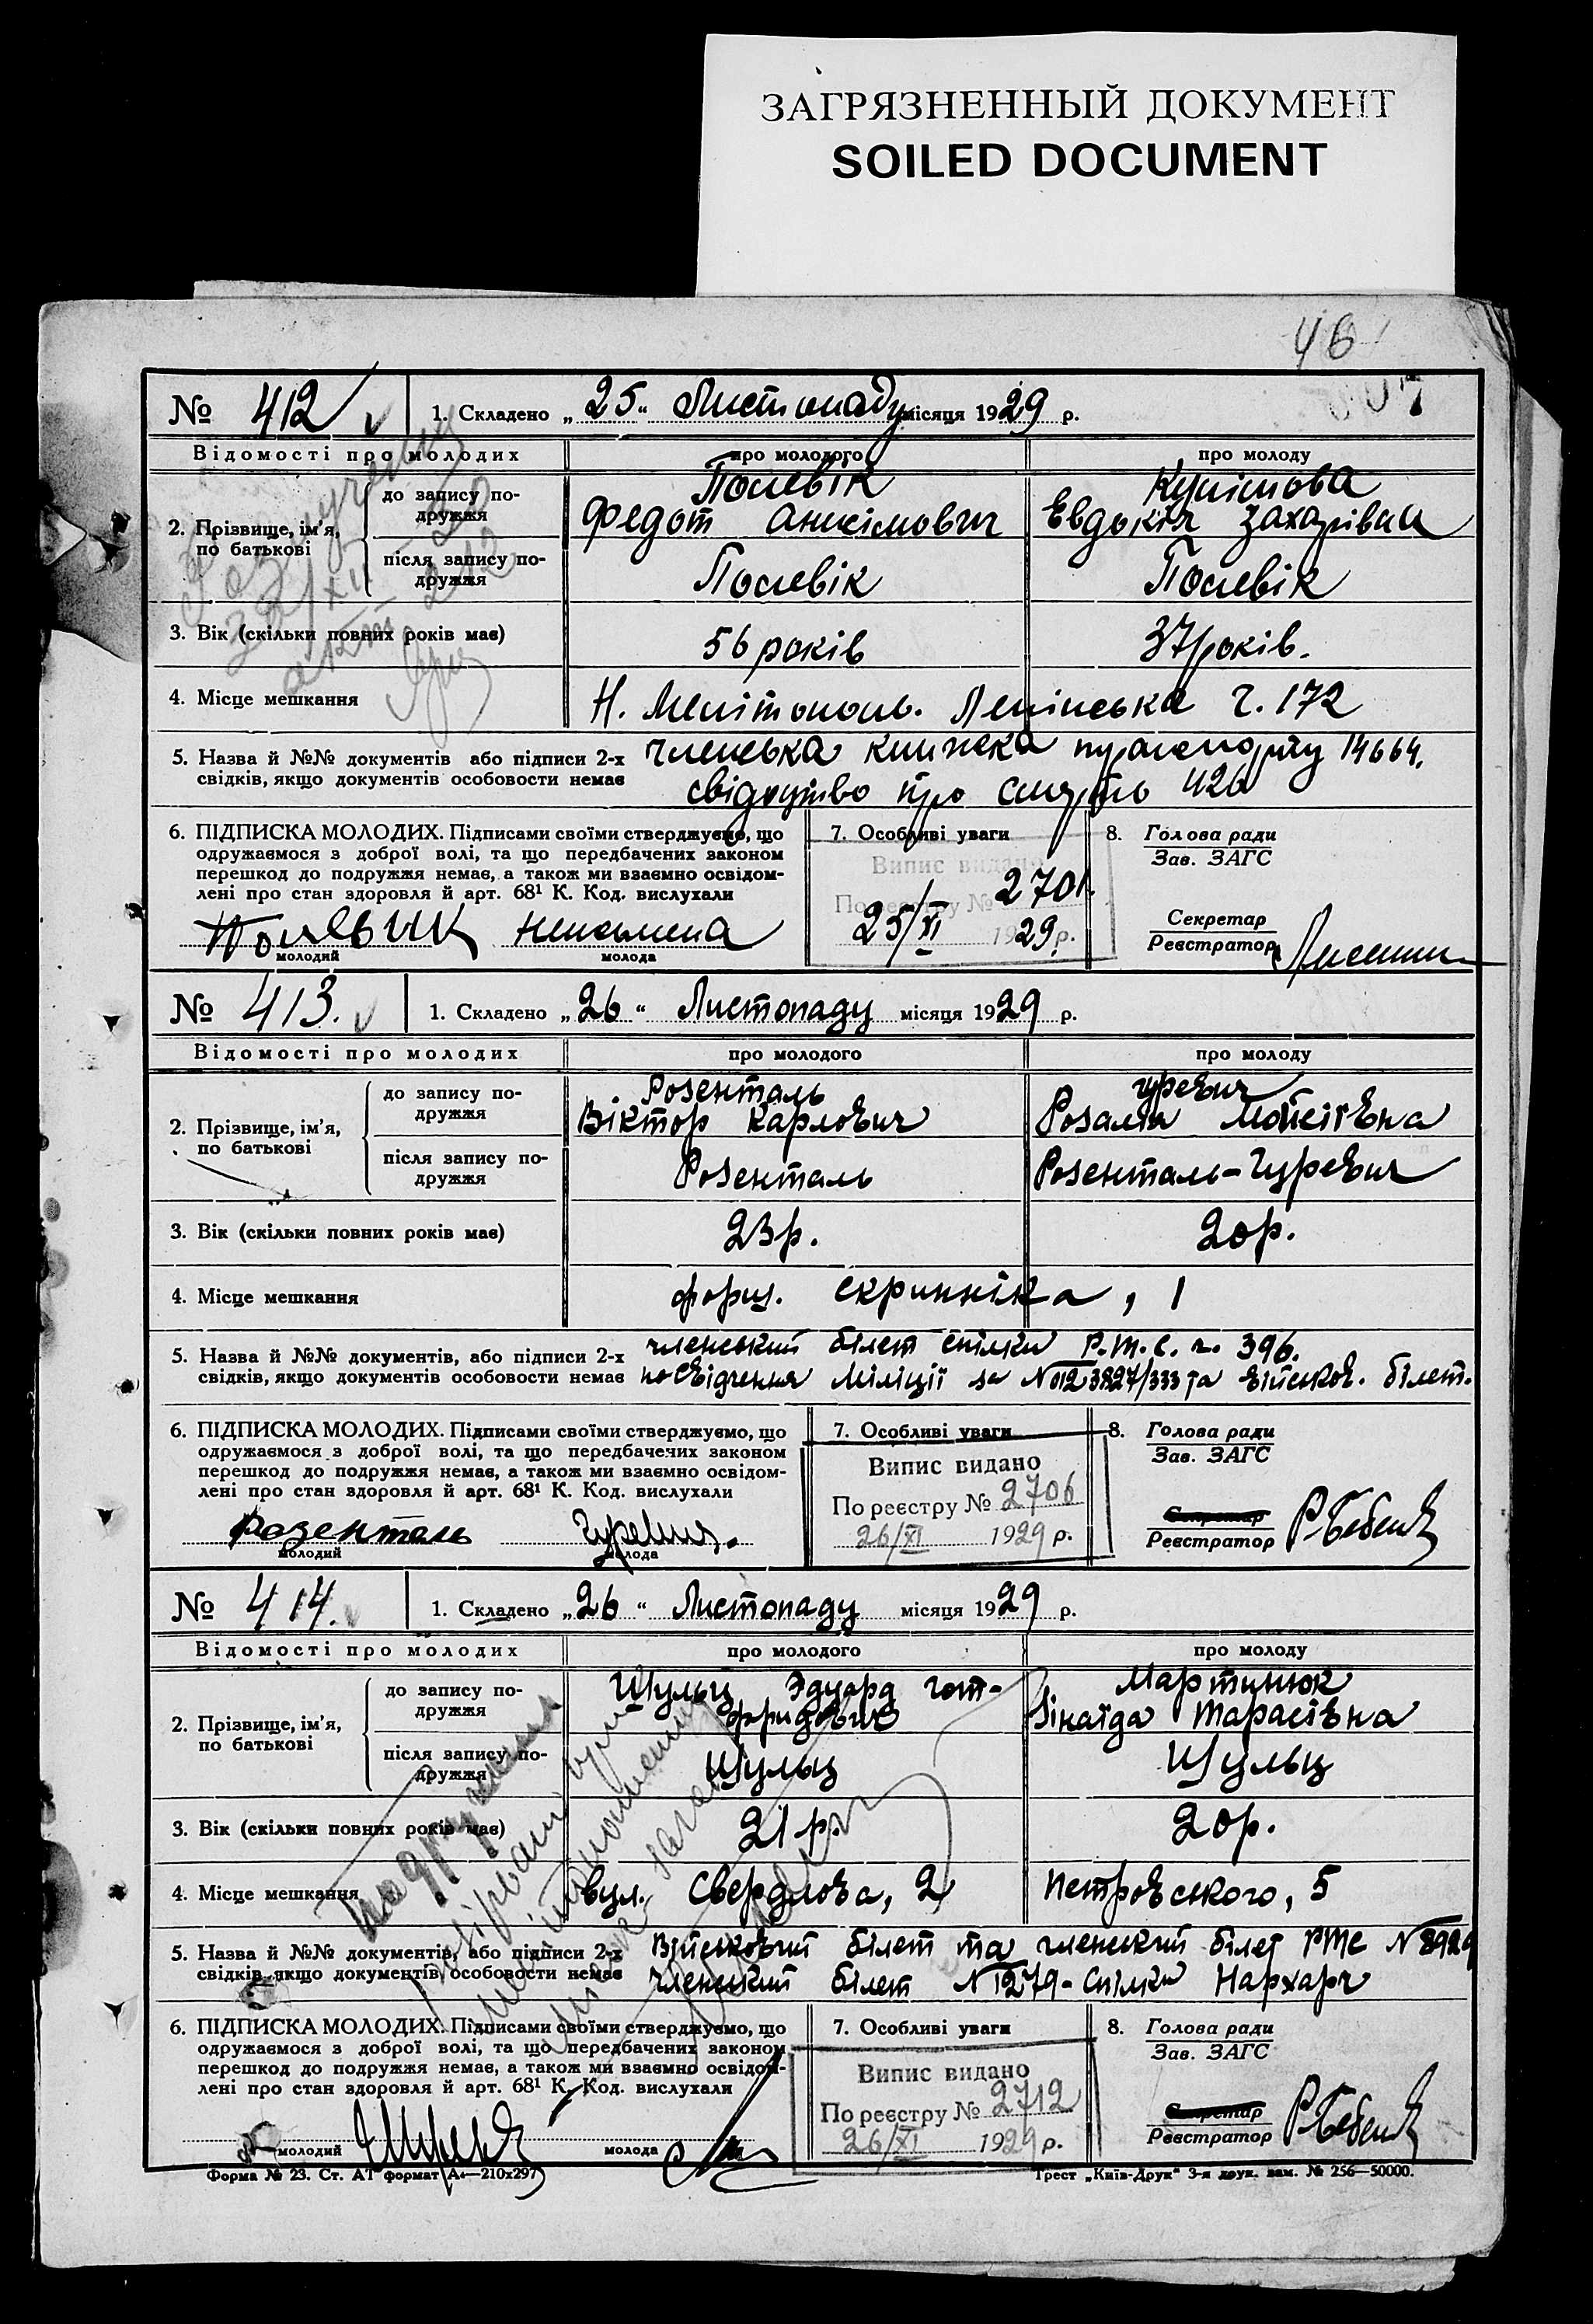 ЗАГРЯЗНЕННЫЙ ДОКУМЕНТ
SOILED DOCUMENT
46
№ 412 1. Складено „25“ Листопаду місяця 1929 р.
Відомості про молодих про молодого про молоду
2. Прізвище, ім'я, по батькові
до запису подружжя
Полевік
Федот Анисімович
Евдокія Захарівна
після запису подружжя
Полевік Полевік
3. Вік (скільки повних років має) 56 років 37 років.
4. Місце мешкання Н. Мелітополь. Ленінська ч. 172
5. Назва й №№ документів або підписи 2-х членська книжка 14664.
свідків, якщо документів особовости немає свідоцтво про смерть 426
6. ПІДПИСКА МОЛОДИХ. Підписами своїми стверджуємо, що
одружаємося з доброї волі, та що передбачених законом
перешкод до подружжя немає, а також ми взаємно освідом-
лені про стан здоровля й арт. 68¹ К. Код. вислухали
Польвик неписмена
молодий молода
7. Особливі уваги
Випис видано
По реєстру № 2701.
25/XI 1929 р.
8. Голова ради
Зав. ЗАГС
Секретар
Реєстратор
№ 413. 1. Складено „26“ Листопаду місяця 1929 р.
Відомості про молодих про молодого про молоду
2. Прізвище, ім'я,
по батькові
до запису по-
дружжя
Розенталь Гуревич
Віктор Карлович Розалія Мойсіївна
після запису по-
дружжя
Розенталь Розенталь-Гуревич
3. Вік (скільки повних років має) 23 р. 20 р.
4. Місце мешкання Скрипніка, 1
5. Назва й №№ документів, або підписи 2-х членський білет спілки Р.М.С. ч. 396.
свідків, якщо документів особовости немає посвідчення Міліції за №0123827/333 та військов. білет.
6. ПІДПИСКА МОЛОДИХ. Підписами своїми стверджуємо, що
одружаємося з доброї волі, та що передбачених законом
перешкод до подружжя немає, а також ми взаємно освідом-
лені про стан здоровля й арт. 68¹ К. Код. вислухали
Розенталь Гуревич.
молодий молода
7. Особливі уваги
Випис видано
По реєстру № 2706
26/XI 1929 р.
8. Голова ради
Зав. ЗАГС
Секретар
Реєстратор
№ 414. 1. Складено „26“ Листопаду місяця 1929 р.
Відомості про молодих про молодого про молоду
2. Прізвище, ім'я,
по батькові
до запису по-
дружжя
Шульц Эдуард Гот- Мартинюк
фридович Зінаїда Тарасівна
після запису по-
дружжя
Шульц Шульц
3. Вік (скільки повних років має) 21 р. 20 р.
4. Місце мешкання вул. Свердлова, 2 Петровського, 5
5. Назва й №№ документів, або підписи 2-х Військовий білет та членський білет РМС № 8929
свідків, якщо документів особовости немає членський білет № 1279 - Спілки Нархарч
6. ПІДПИСКА МОЛОДИХ. Підписами своїми стверджуємо, що
одружаємося з доброї волі, та що передбачених законом
перешкод до подружжя немає, а також ми взаємно освідом-
лені про стан здоровля й арт. 68¹ К. Код. вислухали
молодий молода
7. Особливі уваги
Випис видано
По реєстру № 2712
26/XI 1929 р.
8. Голова ради
Зав. ЗАГС
Секретар
Реєстратор
Форма № 23. Ст. АТ формат А₄—210х297
Трест „Київ-Друк“ 3-я друк. зам. № 256—50000.